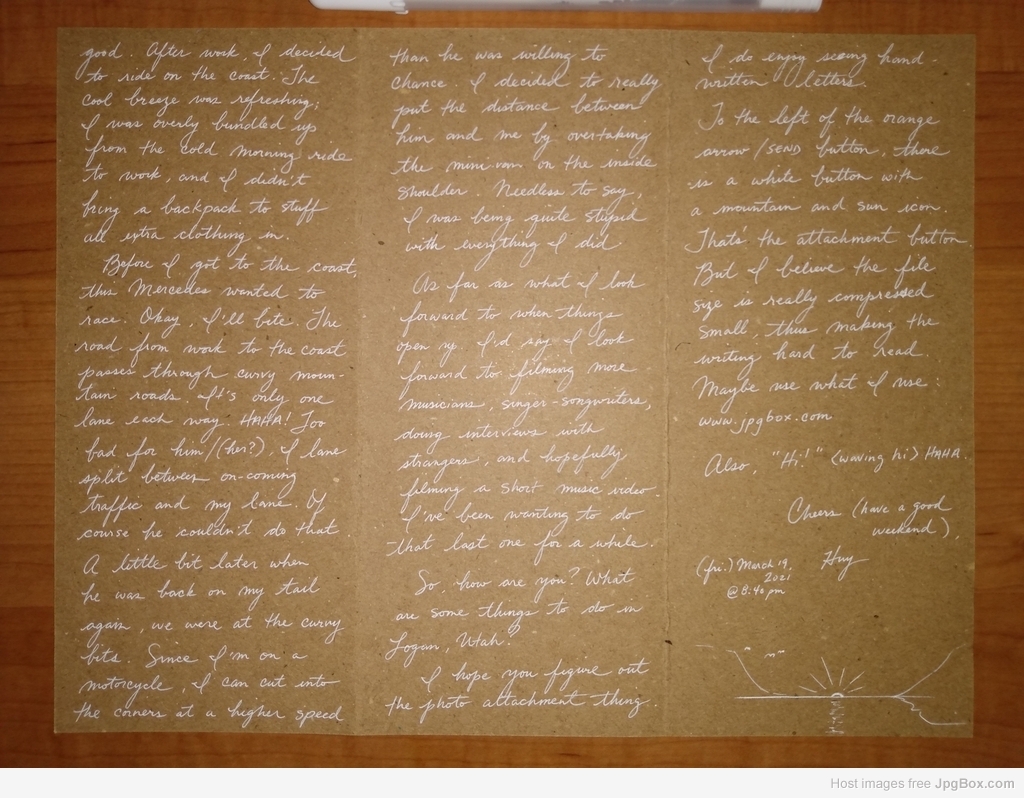 good. After work, I decided
to ride on the coast. The
cool breeze was refreshing;
I was overly bundled up
from the cold morning ride
to work, and I didn't
bring a backpack to stuff
all extra clothing in.
Before I got to the coast,
this Mercedes wanted to
race. Okay, I'll bite. The
road from work to the coast
passes through curvy moun-
tain roads. It's only one
lane each way. HAHA! Too
bad for him/(her?), I lane
split between on-coming
traffic and my lane. Of
course he couldn't do that.
A little bit later when
he was back on my tail
again, we were at the curvy
bits. Since I'm on a
motorcycle, I can cut into
the corners at a higher speed
than he was willing to
chance. I decided to really
put the distance between
him and me by overtaking
the minivan on the inside
shoulder. Needless to say,
I was being quite stupid
with everything I did.
As far as what I look
forward to when things
open up, I'd say I look
forward to filming more
musicians, singer-songwriters,
doing interviews with
strangers, and hopefully
filming a short music video.
I've been wanting to do
that last one for a while.
So, how are you? What
are some things to do in
Logan, Utah?
I hope you figure out
the photo attachment thing.
I do enjoy seeing hand-
written letters.
To the left of the orange
arrow/SEND button, there
is a white button with
a mountain and sun icon.
That's the attachment button.
But I believe the file
size is really compressed
small, thus making the
writing hard to read.
Maybe use what I use:
www.jpgbox.com
Also, "Hi!" (waving hi) HAHA.
Cheers (have a good
weekend),
Huy
(fri.) March 19,
2021
@ 8:40 pm
Host images free JpgBox.com